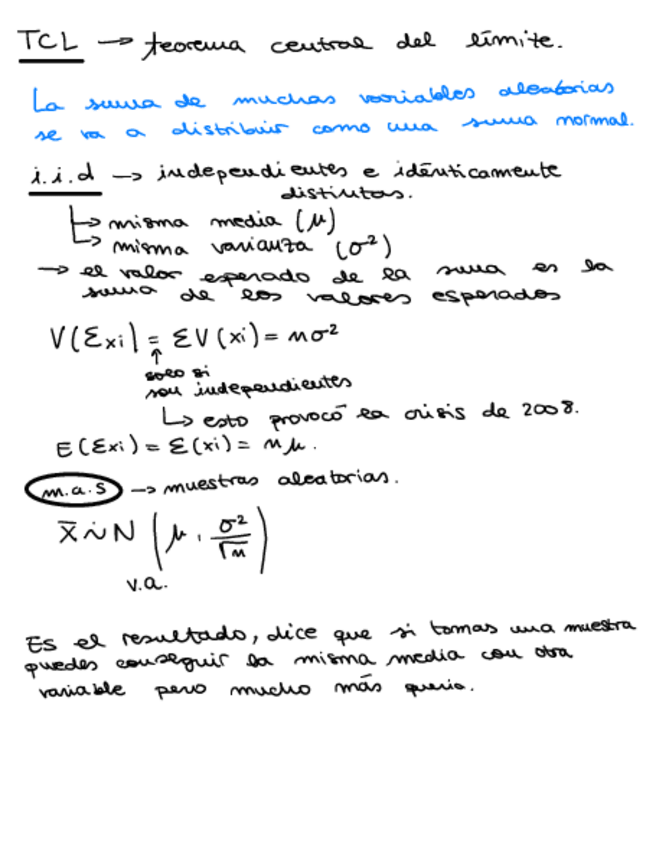 TCL → teorema central del límite.
La suma de muchas variables aleatorias
se va a distribuir como una suma normal.
i.i.d → independientes e idénticamente
distintas.
↳ misma media (μ)
↳ misma varianza (σ²)
→ el valor esperado de la suma es la
suma de los valores esperados
V(Σxi) = ΣV(xi) = nσ²
↑
solo si
son independientes
↳ esto provocó la crisis de 2008.
E(Σxi) = Σ(xi) = nμ.
m.a.s → muestras aleatorias.
X̄ ∼̇ N (μ, σ²/√n)
v.a.
Es el resultado, dice que si tomas una muestra
puedes conseguir la misma media con otra
variable pero mucho más